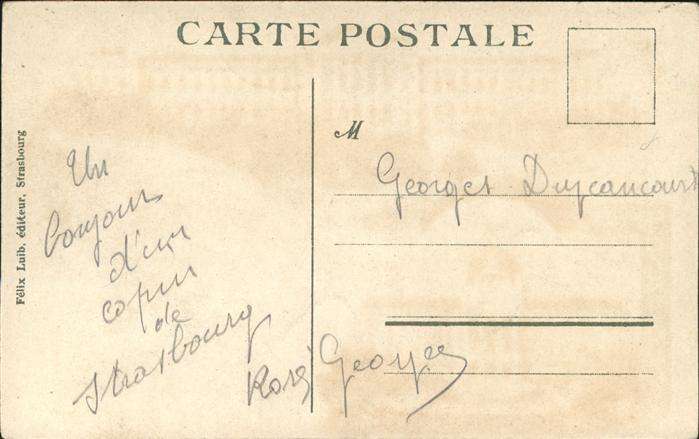 CARTE POSTALE
Félix Luib, éditeur, Strasbourg
M
Georges
Un
bonjour
d'un
copin
de
Strasbourg
Georges